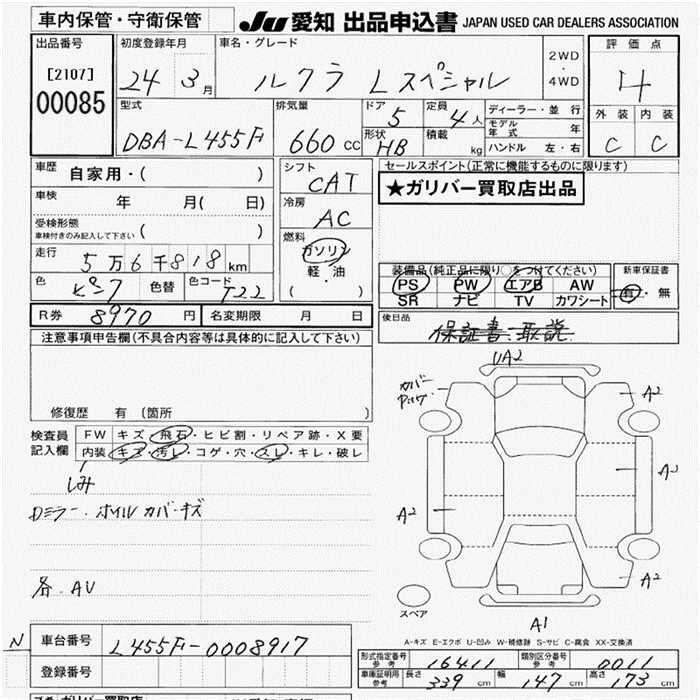 車内保管・守衛保管
JU 愛知 出品申込書 JAPAN USED CAR DEALERS ASSOCIATION
出品番号
[2107]
00085
初度登録年月
24 3月
車名・グレード
ルクラ Lスペシャル
2WD
・
4WD
評価点
4
外装 内装
C C
型式
DBA-L455F
排気量
660 cc
ドア
5
定員
4人
形状
HB
積載
kg
ディーラー・並行
モデル年式 年
ハンドル 左・右
車歴
自家用・( )
車検
年 月( 日)
受検形態
車検付きのみ記入して下さい ( )
走行
5万6千818km
色
ピンク
色替
色コード
T22
シフト
CAT
冷房
AC
燃料
ガソリン
軽・油
( )
セールスポイント(正常に機能するものに限ります)
★ガリバー買取店出品
装備品(純正品に限り○をつけてください)
PS PW エアB AW
SR ナビ TV カワシート
新車保証書
有・無
後日品
保証書・取説
R券 8970 円
名変期限 月 日
注意事項申告欄(不具合内容等は具体的に記入して下さい)
修復歴 有 (箇所 )
検査員
記入欄
FW キズ・飛石・ヒビ割・リペア跡・X要
内装 キズ・汚レ・コゲ・穴・スレ・キレ・破レ
しみ
Dミラー・ホイルカバーキズ
各.AV
UA2
カバー
A2
A2
A2
A2
A1
スペア
A-キズ E-エクボ U-凹み W-補修跡 S-サビ C-腐食 XX-交換済
N
車台番号
L455F-0008917
登録番号
形式指定番号
参考
16411
類別区分番号
参考
0011
車庫証明用
参考
長さ 339 cm 幅 147 cm 高さ 173 cm
ガリバー買取店